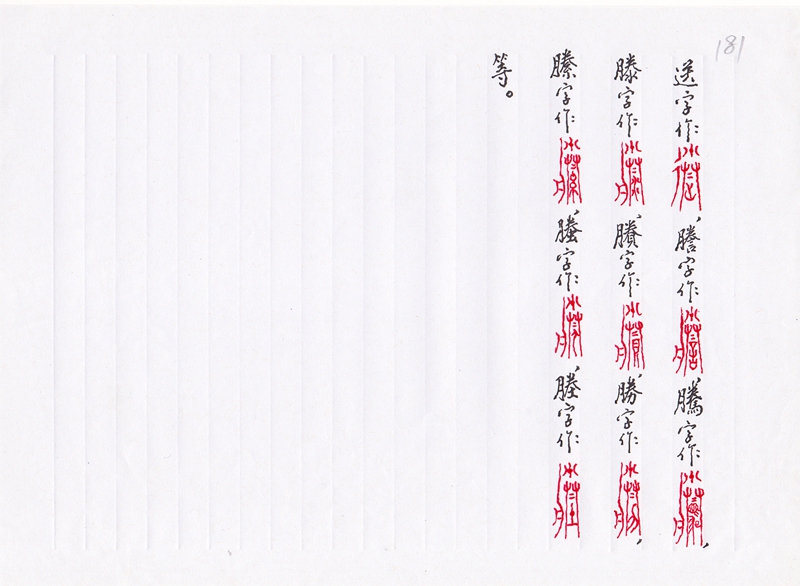 181
送字作、謄字作、騰字作、
滕字作、賸字作、勝字作、
縢字作、螣字作、塍字作
等。